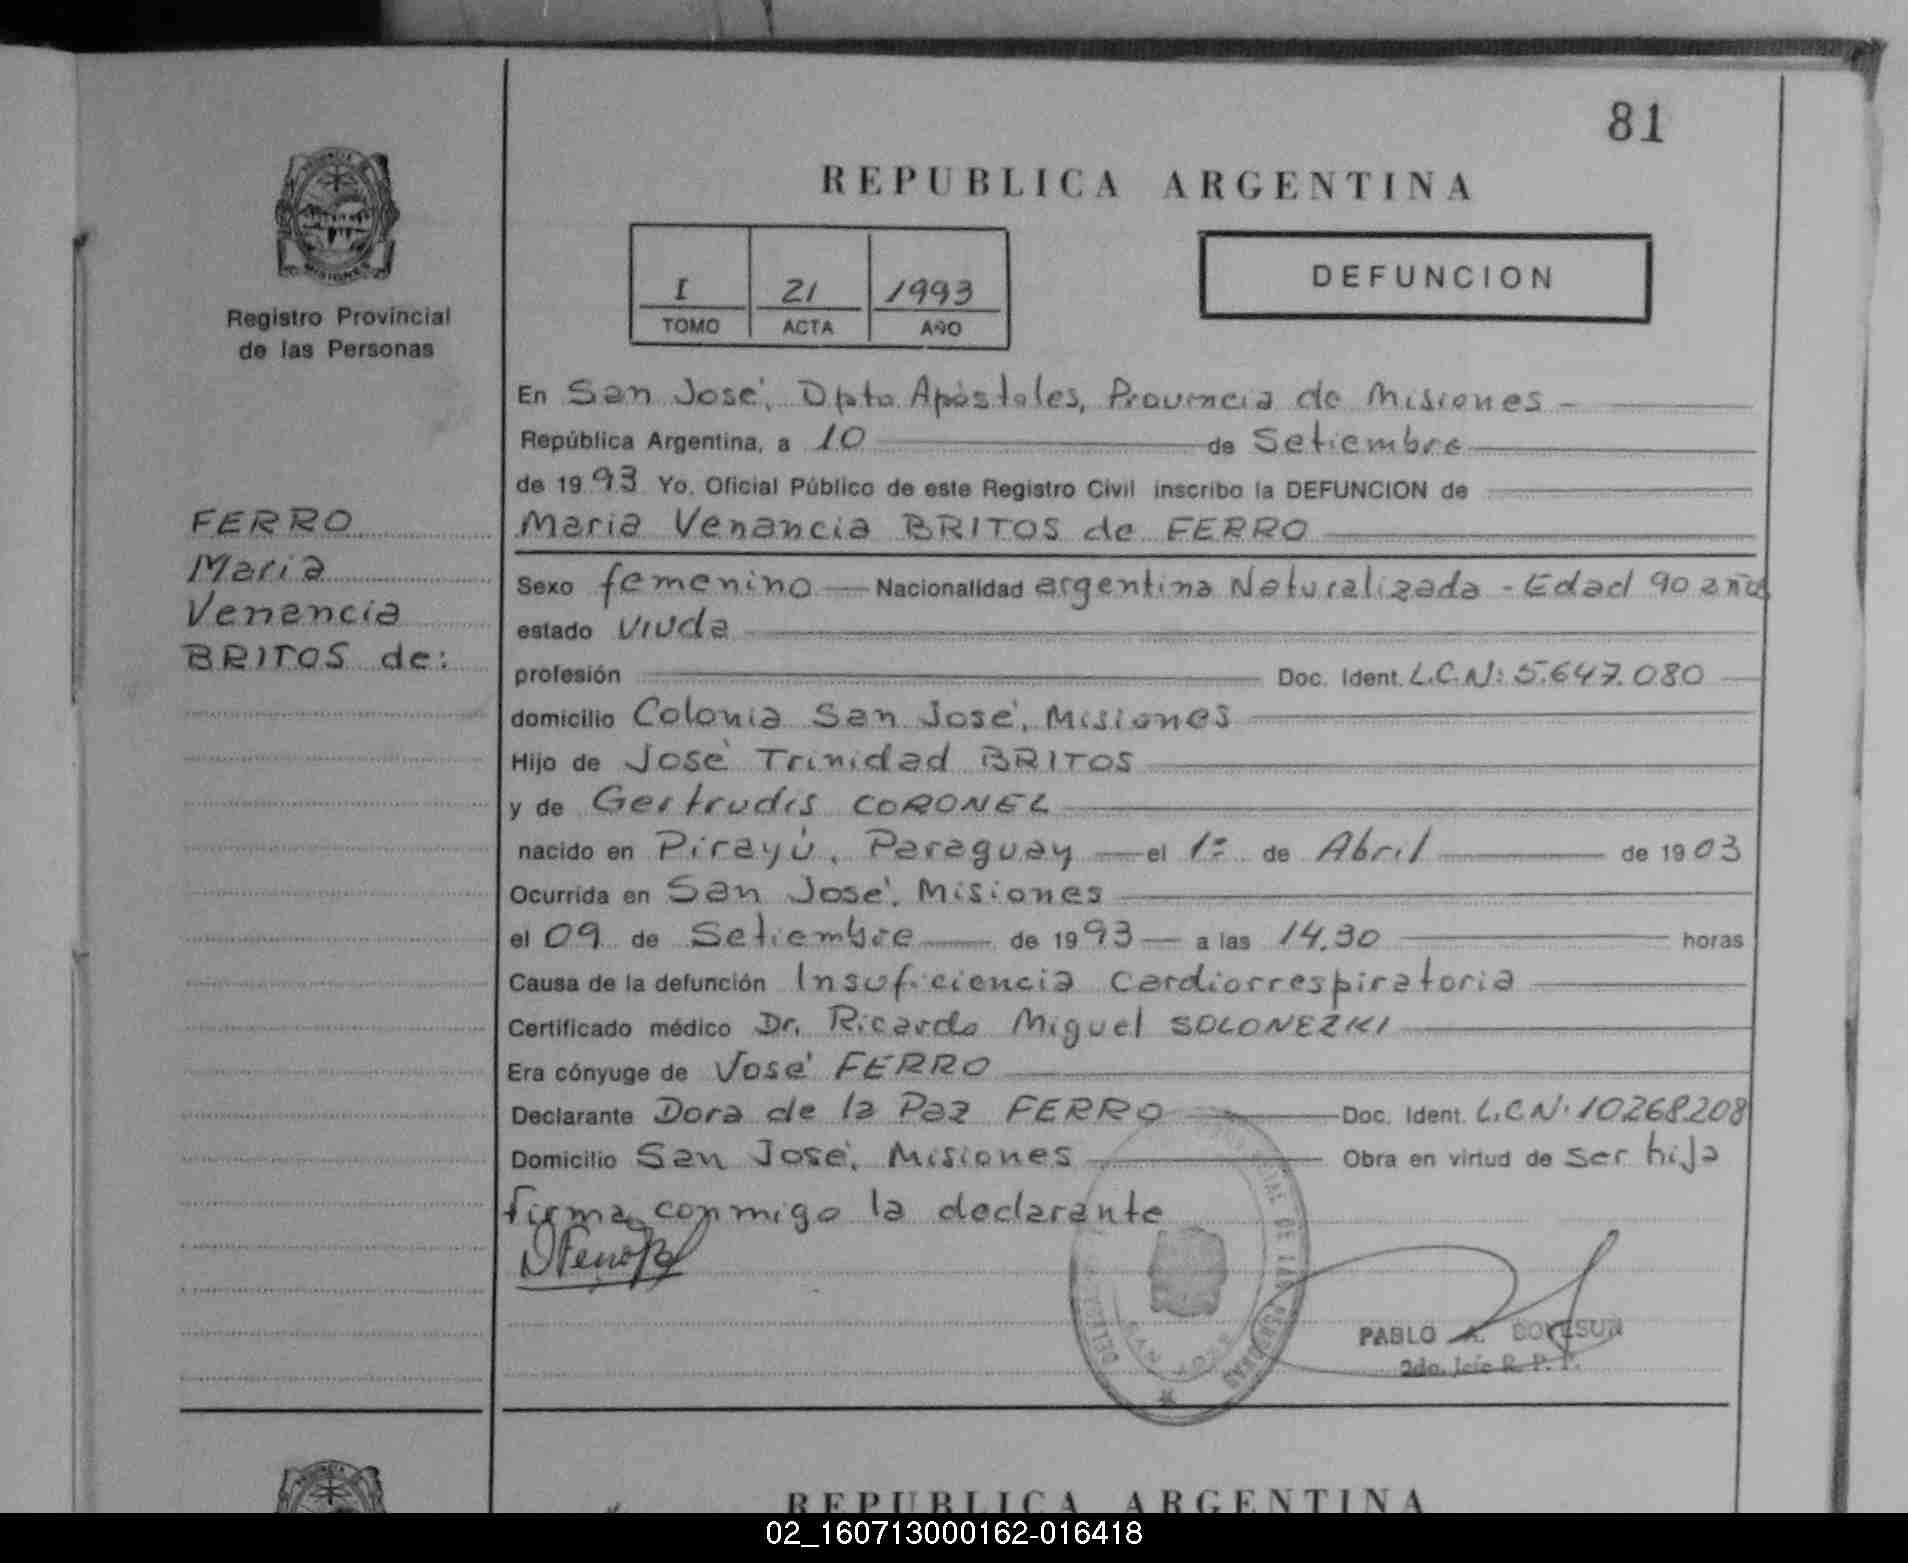 81
REPUBLICA ARGENTINA
MISIONES
Registro Provincial
de las Personas
I 21 1993
TOMO ACTA AÑO
DEFUNCION
En San José, Dpto Apóstoles, Provincia de Misiones -
República Argentina, a 10 de Setiembre
de 1993 Yo, Oficial Público de este Registro Civil inscribo la DEFUNCION de
Maria Venancia BRITOS de FERRO
FERRO
Maria
Venancia
BRITOS de:
Sexo femenino Nacionalidad argentina Naturalizada - Edad 90 años
estado viuda
profesión Doc. Ident. L.C.N: 5.647.080
domicilio Colonia San José, Misiones
Hijo de José Trinidad BRITOS
y de Gertrudis CORONEL
nacido en Pirayú, Paraguay el 1º de Abril de 1903
Ocurrida en San José, Misiones
el 09 de Setiembre de 1993 a las 14.30 horas
Causa de la defunción Insuficiencia Cardiorrespiratoria
Certificado médico Dr. Ricardo Miguel SOLONEZKI
Era cónyuge de José FERRO
Declarante Dora de la Paz FERRO Doc. Ident. L.C.N. 10268208
Domicilio San José, Misiones Obra en virtud de ser hija
firma conmigo la declarante
DE LAS PERSONAS
SAN JOSE
PABLO A.
2do. Jefe R. P. P.
REPUBLICA ARGENTINA
02_160713000162-016418